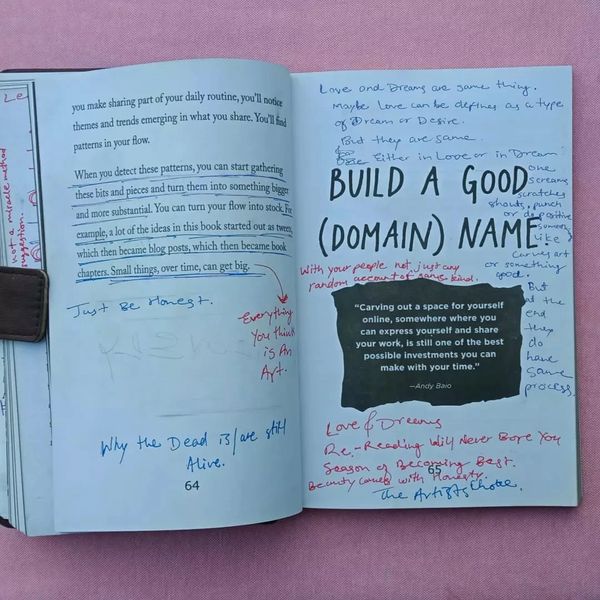 Le
not a miracle method
suggestion.
you make sharing part of your daily routine, you'll notice
themes and trends emerging in what you share. You'll find
patterns in your flow.
When you detect these patterns, you can start gathering
these bits and pieces and turn them into something bigger
and more substantial. You can turn your flow into stock. For
example, a lot of the ideas in this book started out as tweets,
which then became blog posts, which then became book
chapters. Small things, over time, can get big.
Just Be Honest.
Everything
You think
is An
Art.
Why the Dead is/are still
Alive.
64
Love and Dreams are same thing.
Maybe Love can be defines as a type
of Dream or Desire.
But they are same.
Either in Love or in Dream
one
screams
scratches
shouts, punch
or
someone
like
carves art
or something
good.
But
at the
end
they
do
have
same
process.
BUILD A GOOD
(DOMAIN) NAME
With your people not just any
random account of same kind.
"Carving out a space for yourself
online, somewhere where you
can express yourself and share
your work, is still one of the best
possible investments you can
make with your time."
—Andy Baio
Love & Dreams
Re-Reading Will Never Bore You
Season of Becoming Best.
65
Beauty comes with Honesty.
The Artists